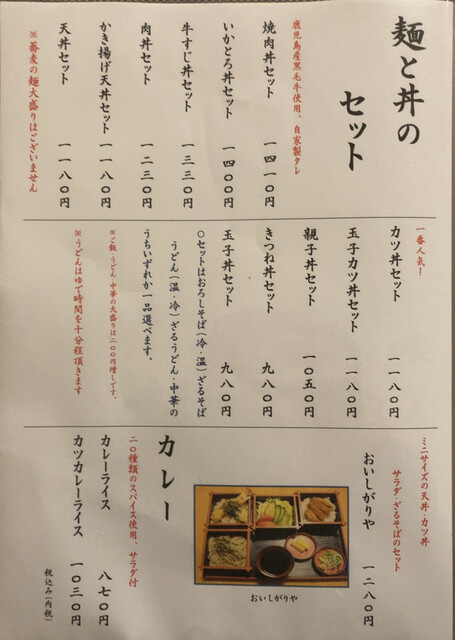 麺と丼の
セット
鹿児島産黒毛牛使用、自家製タレ
焼肉丼セット 一四一〇円
いかとろ丼セット 一四〇〇円
牛すじ丼セット 一三三〇円
肉丼セット 一二三〇円
かき揚げ天丼セット 一一八〇円
天丼セット 一一八〇円
※蕎麦の麺大盛りはございません
一番人気!
カツ丼セット 一一八〇円
玉子カツ丼セット 一一八〇円
親子丼セット 一〇五〇円
きつね丼セット 九八〇円
玉子丼セット 九八〇円
○セットはおろしそば(冷・温)ざるそば
うどん(温・冷)ざるうどん・中華の
うちいずれか一品選べます。
※ご飯・うどん・中華の大盛りは二〇〇円増しです。
※うどんはゆで時間を十分程頂きます
ミニサイズの天丼・カツ丼
サラダ・ざるそばのセット
おいしがりや 一二八〇円
おいしがりや
カレー
二〇種類のスパイス使用、サラダ付
カレーライス 八七〇円
カツカレーライス 一〇三〇円
税込み(内税)